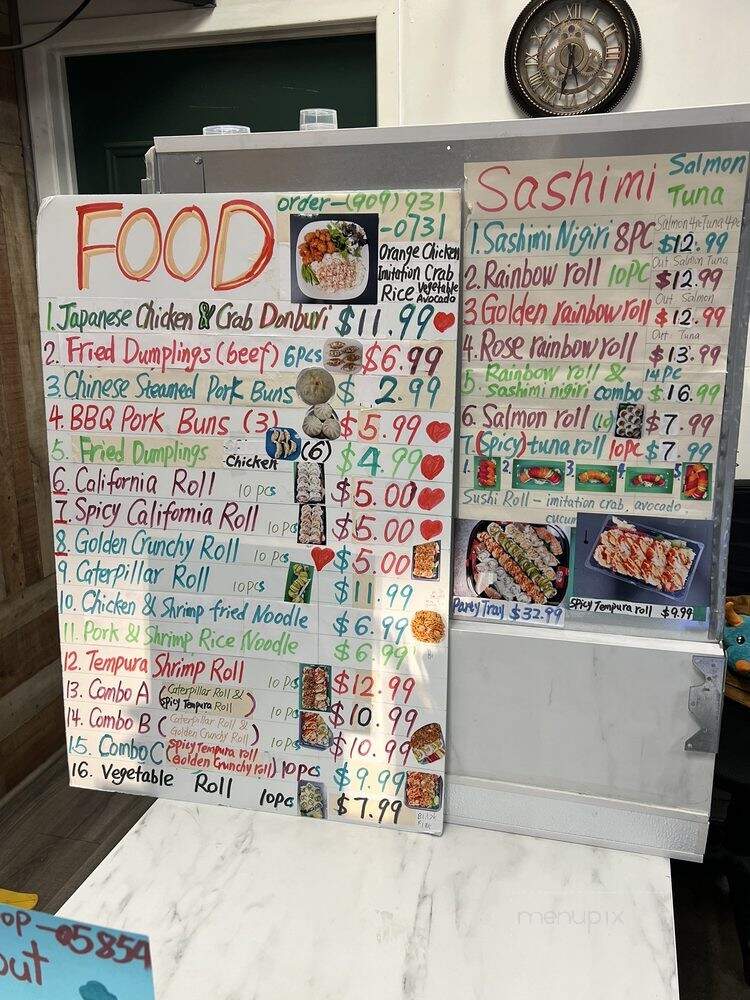 FOOD
order-(909)931
-0731
Orange Chicken
Imitation Crab
Rice Vegetable
Avocado
1. Japanese Chicken & Crab Donburi $11.99
2. Fried Dumplings (beef) 6PCS $6.99
3. Chinese Steamed Pork Buns $ 2.99
4. BBQ Pork Buns (3) $5.99
5. Fried Dumplings (6) $4.99
Chicken
6. California Roll 10 PCS $5.00
7. Spicy California Roll 10 PCS $5.00
8. Golden Crunchy Roll 10 PCS $5.00
9. Caterpillar Roll 10 PCS $11.99
10. Chicken & Shrimp fried Noodle $6.99
11. Pork & Shrimp Rice Noodle $6.99
12. Tempura Shrimp Roll 10 PCS $12.99
13. Combo A (Caterpillar Roll & Spicy Tempura Roll) 10 PCS $10.99
14. Combo B (Caterpillar Roll & Golden Crunchy Roll) 10 PCS $10.99
15. Combo C (Spicy Tempura roll Golden Crunchy roll) 10PCS $9.99
16. Vegetable Roll 10PC $7.99
Sashimi Salmon
Tuna
Salmon 4pc Tuna 4pc
1. Sashimi Nigiri 8PC $12.99
Out Salmon Tuna
2. Rainbow roll 10PC $12.99
Out Salmon
3 Golden rainbow roll $12.99
Out Tuna
4. Rose rainbow roll $13.99
5 Rainbow roll & 14PC
sashimi nigiri combo $16.99
6. Salmon roll $7.99
7. (Spicy) tuna roll 10PC $7.99
1. 2. 3 4 5
Sushi Roll - imitation crab, avocado,
cucum
Party Tray $32.99
Spicy Tempura roll $9.99
menupix
op-05854
out